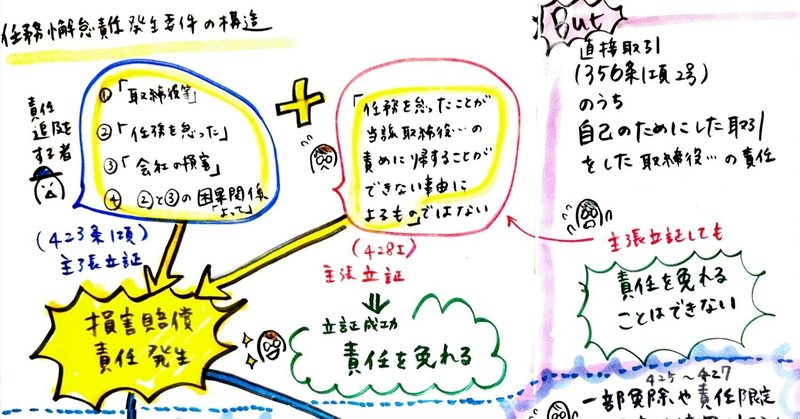 任務懈怠責任発生要件の構造
責任
追及
する者
①「取締役等」
②「任務を怠った」
③「会社の損害」
④ ②と③の因果関係
「よって」
(423条1項)
主張立証
+
「任務を怠ったことが
当該取締役…の
責めに帰することが
できない事由に
よるもの」ではない
(428Ⅰ)
主張立証
⇓
立証成功
責任を免れる
損害賠償
責任発生
But
直接取引
(356条1項2号)
のうち
自己のためにした取引
をした取締役…の責任
主張立証しても
責任を免れる
ことはできない
425~427
一部免除や責任限定